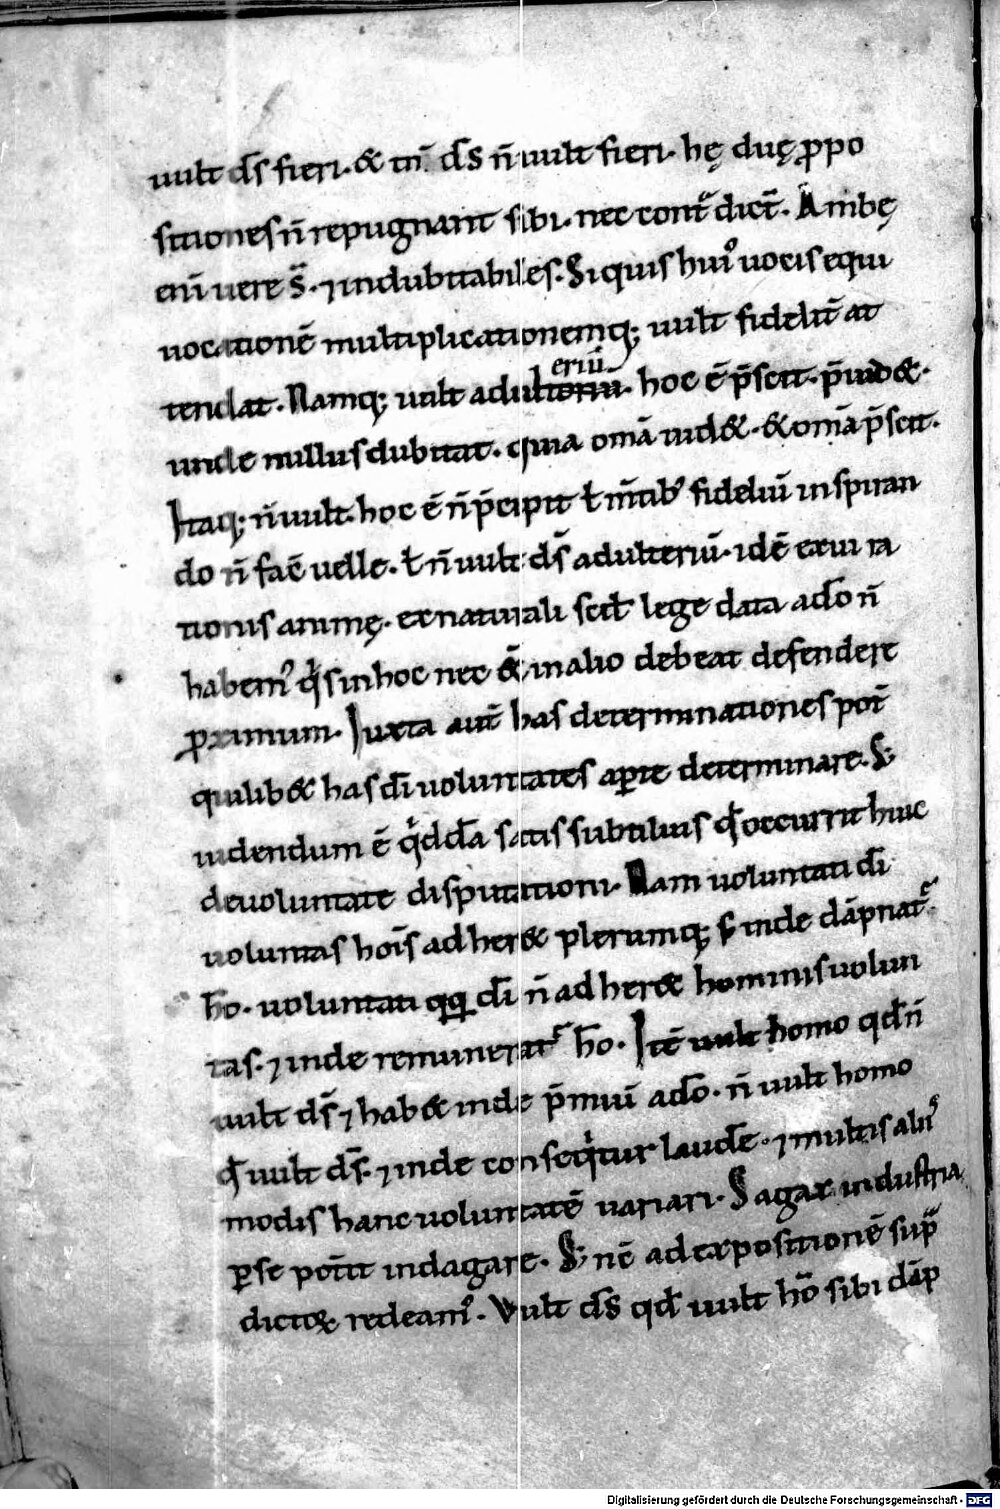 uult d̄s fieri. & tn̄. d̄s n̄ uult fieri. hę duę ꝓpo
sitiones n̄ repugnant sibi. nec contᷓdict̄. Ambę
eni᷑ uere sᷓ. ⁊ indubitabiles. Siquis hui᷒ uocis equi
uocationē multiplicationemq; uult fideliū at
tendat. Namq; uult adulteriū. hoc ē p̄scit. p̄uid&.
unde nullus dubitat. quia om̄a uid&. & om̄a p̄scit.
Itaq; n̄ uult. hoc ē n̄ p̄cipit ł m̄tib᷒ fideliū inspiran
do n̄ fac̄ uelle. ł n̄ uult d̄s adulteriū. idē ex ui ra
tionis animę. ex naturali scił lege data a dō n̄
habem᷒ qͥs in hoc nec & in alio debeat defendere
ꝓximum. Iuxta aut̄ has determinationes pot̄
quilib& has d̄i uoluntates aꝑte determinare. S;
uidendum ē qͥdd̄a satis subtilius qđ occurrit huic
de uoluntate disputationi. Nam uoluntati d̄i
uoluntas hoīs adher& plerumq; s᷑ inde dāpnat᷑
h̄o. uoluntati qq̨ d̄i n̄ adher& hominis uolun
tas. ⁊ inde remunerat᷑ h̄o. Itē uult homo qđ n̄
uult d̄s ⁊ hab& inde p̄miū a dō. n̄ uult homo
qđ uult d̄s. ⁊ inde conseqͥtur laudē. ⁊ multis alii᷒
modis hanc uoluntatē uariari. Sagax industria
ꝑ se pot̄it indagare. S; nē ad expositionē supᷓ
dictoꝝ redeam᷒. Vult d̄s qđ uult h̄o sibi dāp